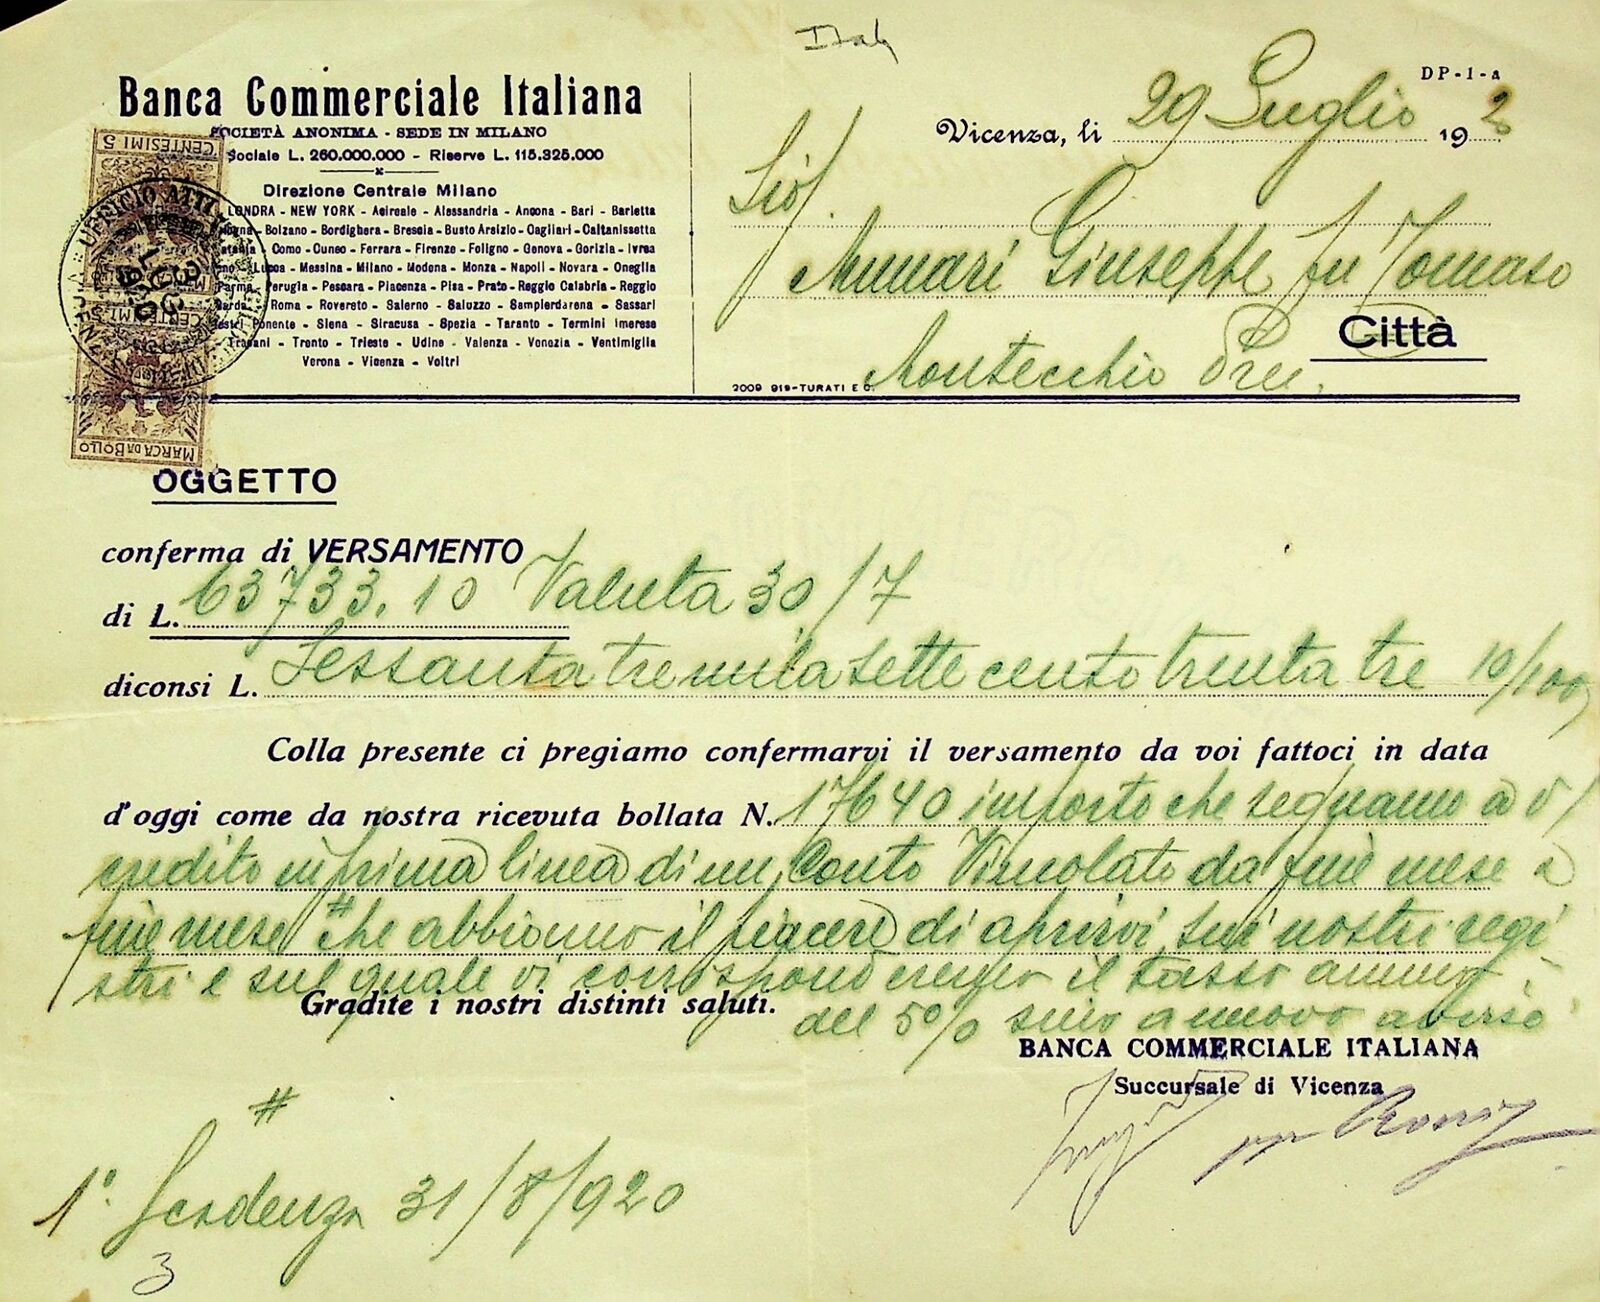 Italy
DP-1-a
Banca Commerciale Italiana
SOCIETÀ ANONIMA - SEDE IN MILANO
Sociale L. 260.000.000 - Riserve L. 115.325.000
Direzione Centrale Milano
LONDRA - NEW YORK - Acireale - Alessandria - Ancona - Bari - Barletta
Bolzano - Bordighera - Brescia - Busto Arsizio - Cagliari - Caltanissetta
Como - Cuneo - Ferrara - Firenze - Foligno - Genova - Gorizia - Ivrea
Lucca - Messina - Milano - Modena - Monza - Napoli - Novara - Oneglia
Parma - Perugia - Pescara - Piacenza - Pisa - Prato - Reggio Calabria - Reggio
Roma - Rovereto - Salerno - Saluzzo - Sampierdarena - Sassari
Sestri Ponente - Siena - Siracusa - Spezia - Taranto - Termini Imerese
Trapani - Trento - Trieste - Udine - Valenza - Venezia - Ventimiglia
Verona - Vicenza - Voltri
CENTESIMI 5
UFFICIO ATTI
CENTESIMI 5
MARCA DA BOLLO
Vicenza, li 29 Luglio 192
Sig.
Munari Giuseppe fu Tomaso
Città
Montecchio Prec.
2009 919-TURATI E C.
OGGETTO
conferma di VERSAMENTO
di L. 63733.10 Valuta 30/7
diconsi L. Sessantatremilasettecentotrentatre 10/100
Colla presente ci pregiamo confermarvi il versamento da voi fattoci in data
d'oggi come da nostra ricevuta bollata N. 17640 importo che segnamo a v/
credito in prima linea di un Conto Vincolato da fine mese a
fine mese # che abbiamo il piacere di aprirvi sui nostri regi
stri e sul quale vi corrisponderemo il tasso annuo
del 5% sino a nuovo avviso
Gradite i nostri distinti saluti.
BANCA COMMERCIALE ITALIANA
Succursale di Vicenza
#
1ª Scadenza 31/8/920
3